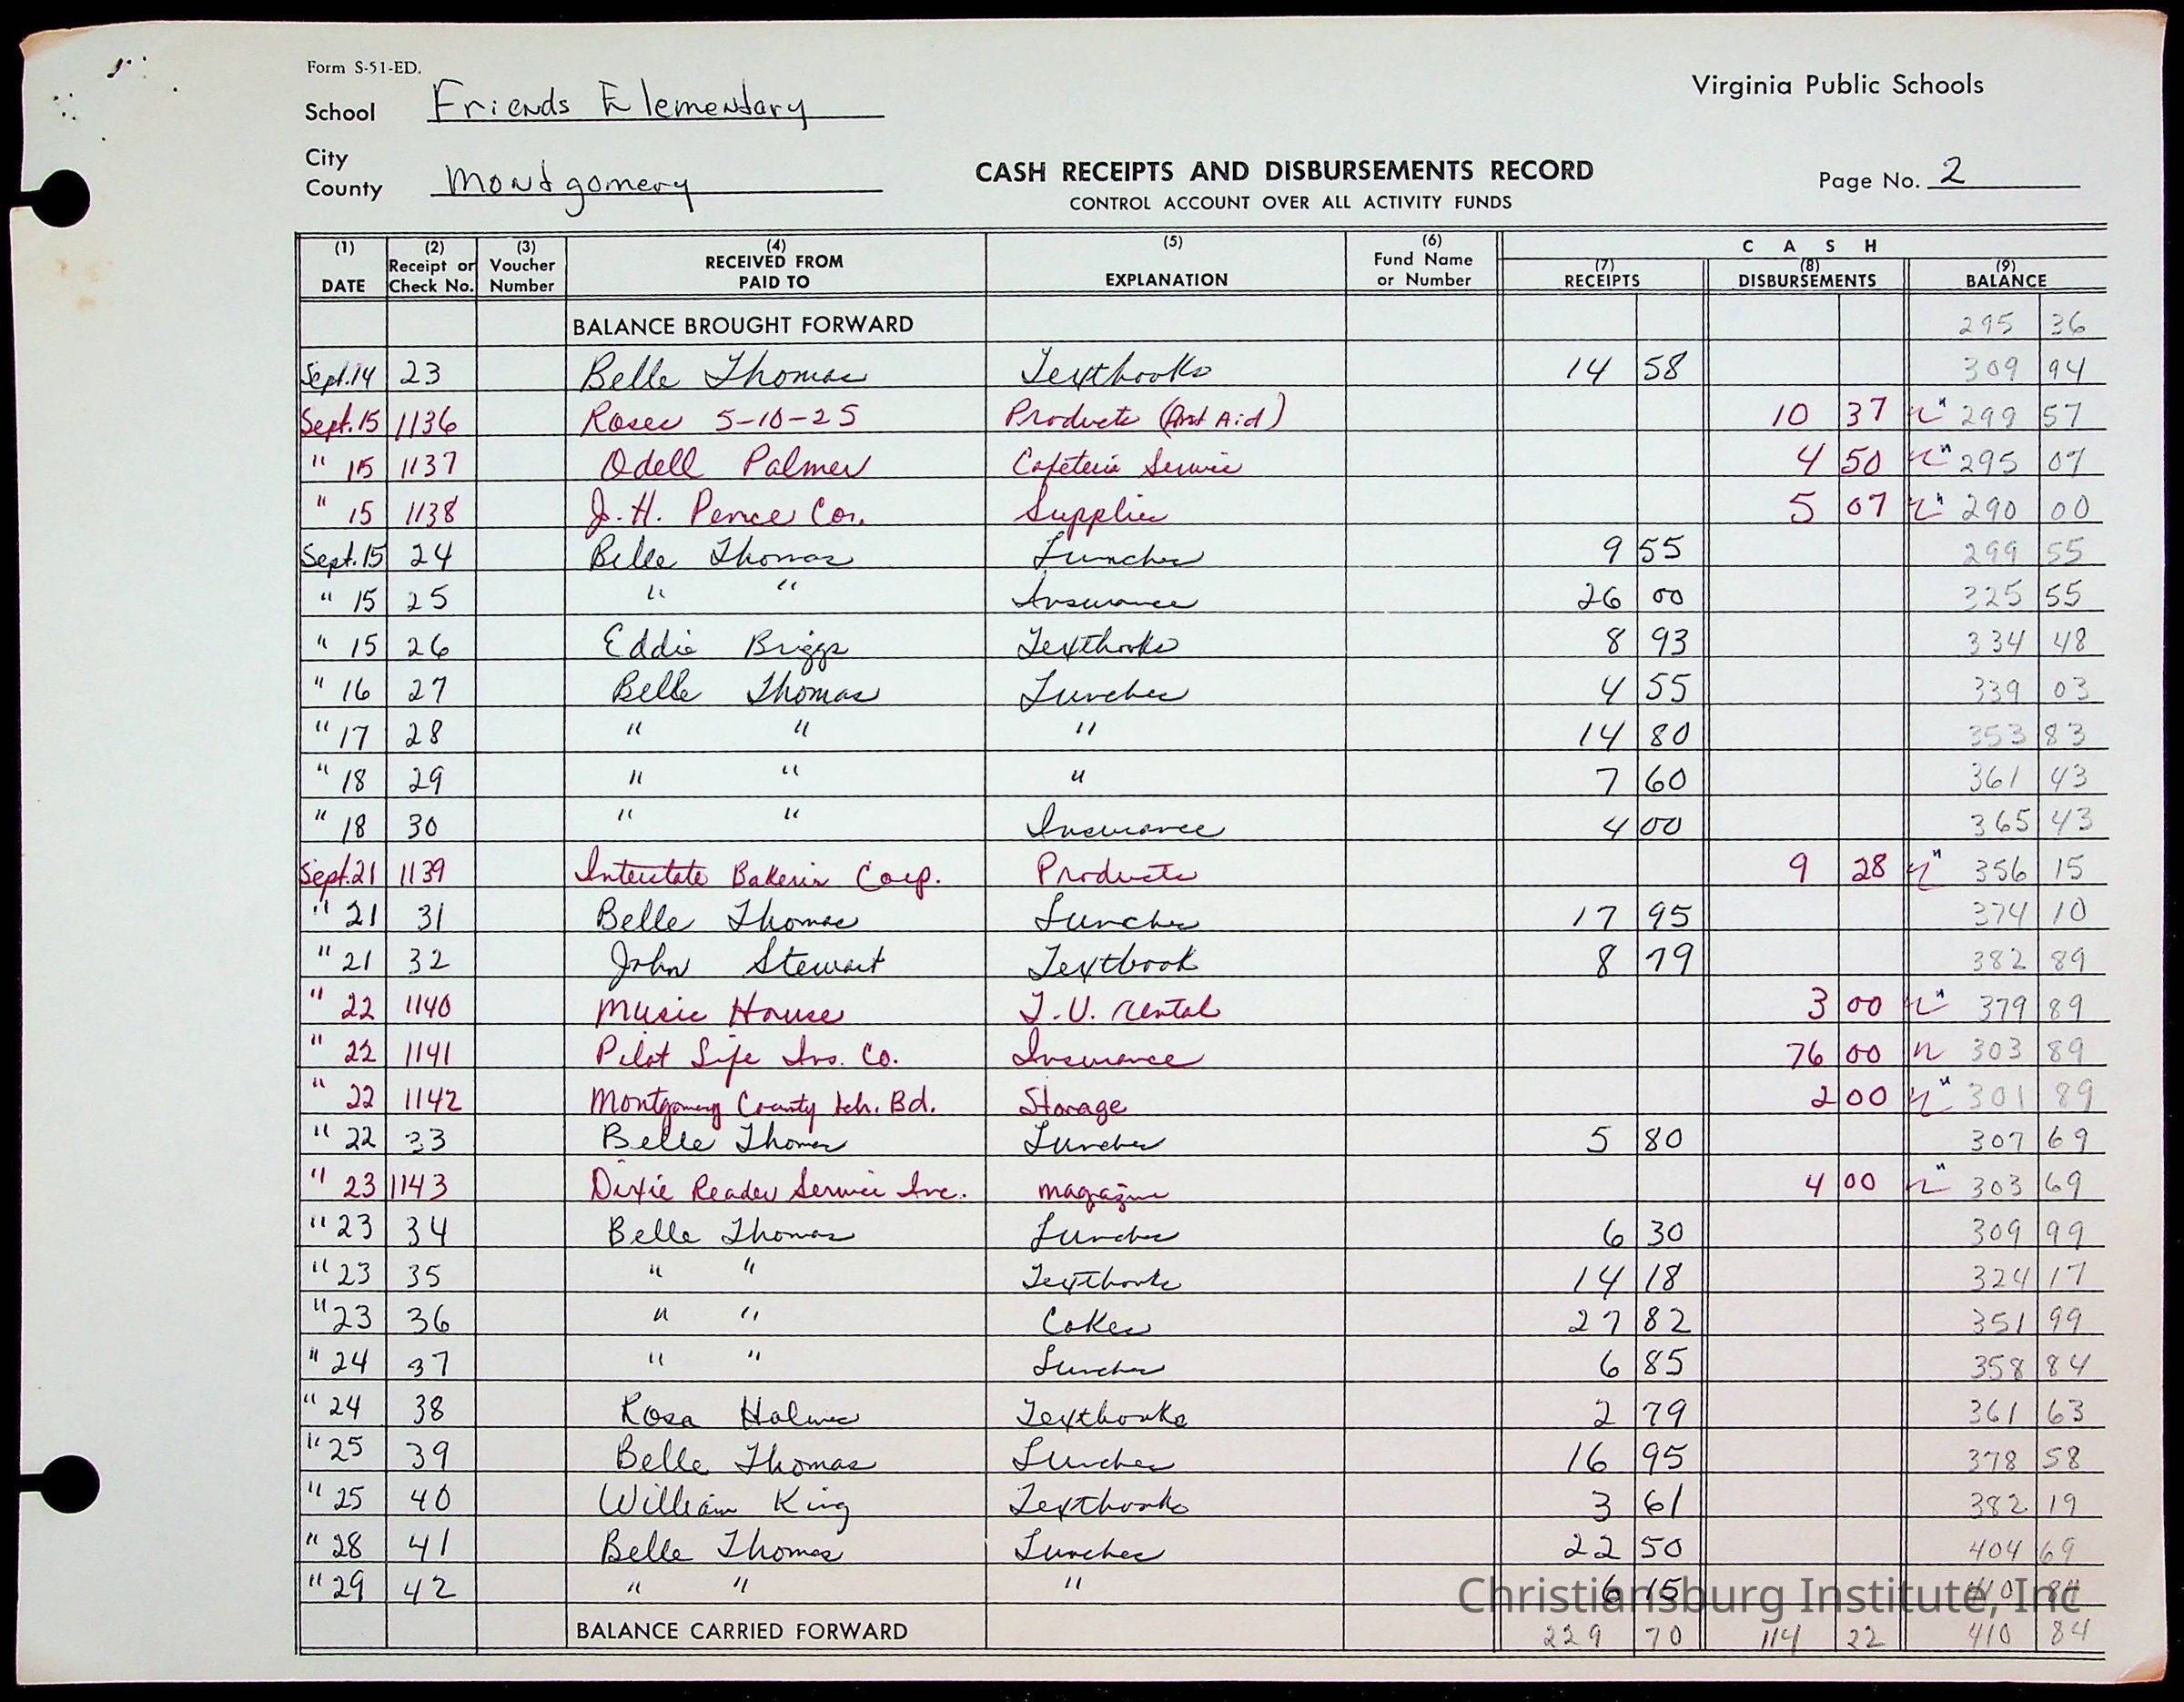 Form S-51-ED.
School Friends Elementary
Virginia Public Schools
City
County Montgomery
CASH RECEIPTS AND DISBURSEMENTS RECORD
Page No. 2
CONTROL ACCOUNT OVER ALL ACTIVITY FUNDS
(1) DATE (2) Receipt or Check No. (3) Voucher Number (4) RECEIVED FROM PAID TO (5) EXPLANATION (6) Fund Name or Number CASH (7) RECEIPTS (8) DISBURSEMENTS (9) BALANCE
BALANCE BROUGHT FORWARD 295 36
Sept.14 23 Belle Thomas Textbooks 14 58 309 94
Sept.15 1136 Roses 5-10-25 Products (First Aid) 10 37 299 57
" 15 1137 Odell Palmer Cafeteria Service 4 50 295 07
" 15 1138 J.H. Pence Co. Supplies 5 07 290 00
Sept.15 24 Belle Thomas Lunches 9 55 299 55
" 15 25 " " Insurance 26 00 325 55
" 15 26 Eddie Briggs Textbooks 8 93 334 48
" 16 27 Belle Thomas Lunches 4 55 339 03
" 17 28 " " " 14 80 353 83
" 18 29 " " " 7 60 361 43
" 18 30 " " Insurance 4 00 365 43
Sept.21 1139 Interstate Bakeries Corp. Products 9 28 356 15
" 21 31 Belle Thomas Lunches 17 95 374 10
" 21 32 John Stewart Textbook 8 79 382 89
" 22 1140 Music House T.V. rental 3 00 379 89
" 22 1141 Pilot Life Ins. Co. Insurance 76 00 303 89
" 22 1142 Montgomery County Sch. Bd. Storage 2 00 301 89
" 22 33 Belle Thomas Lunches 5 80 307 69
" 23 1143 Dixie Reader Service Inc. magazine 4 00 303 69
" 23 34 Belle Thomas Lunches 6 30 309 99
" 23 35 " " Textbooks 14 18 324 17
" 23 36 " " Cokes 27 82 351 99
" 24 37 " " Lunches 6 85 358 84
" 24 38 Rosa Holmes Textbooks 2 79 361 63
" 25 39 Belle Thomas Lunches 16 95 378 58
" 25 40 William King Textbooks 3 61 382 19
" 28 41 Belle Thomas Lunches 22 50 404 69
" 29 42 " " " 6 15 410 84
Christiansburg Institute, Inc
BALANCE CARRIED FORWARD 229 70 114 22 410 84